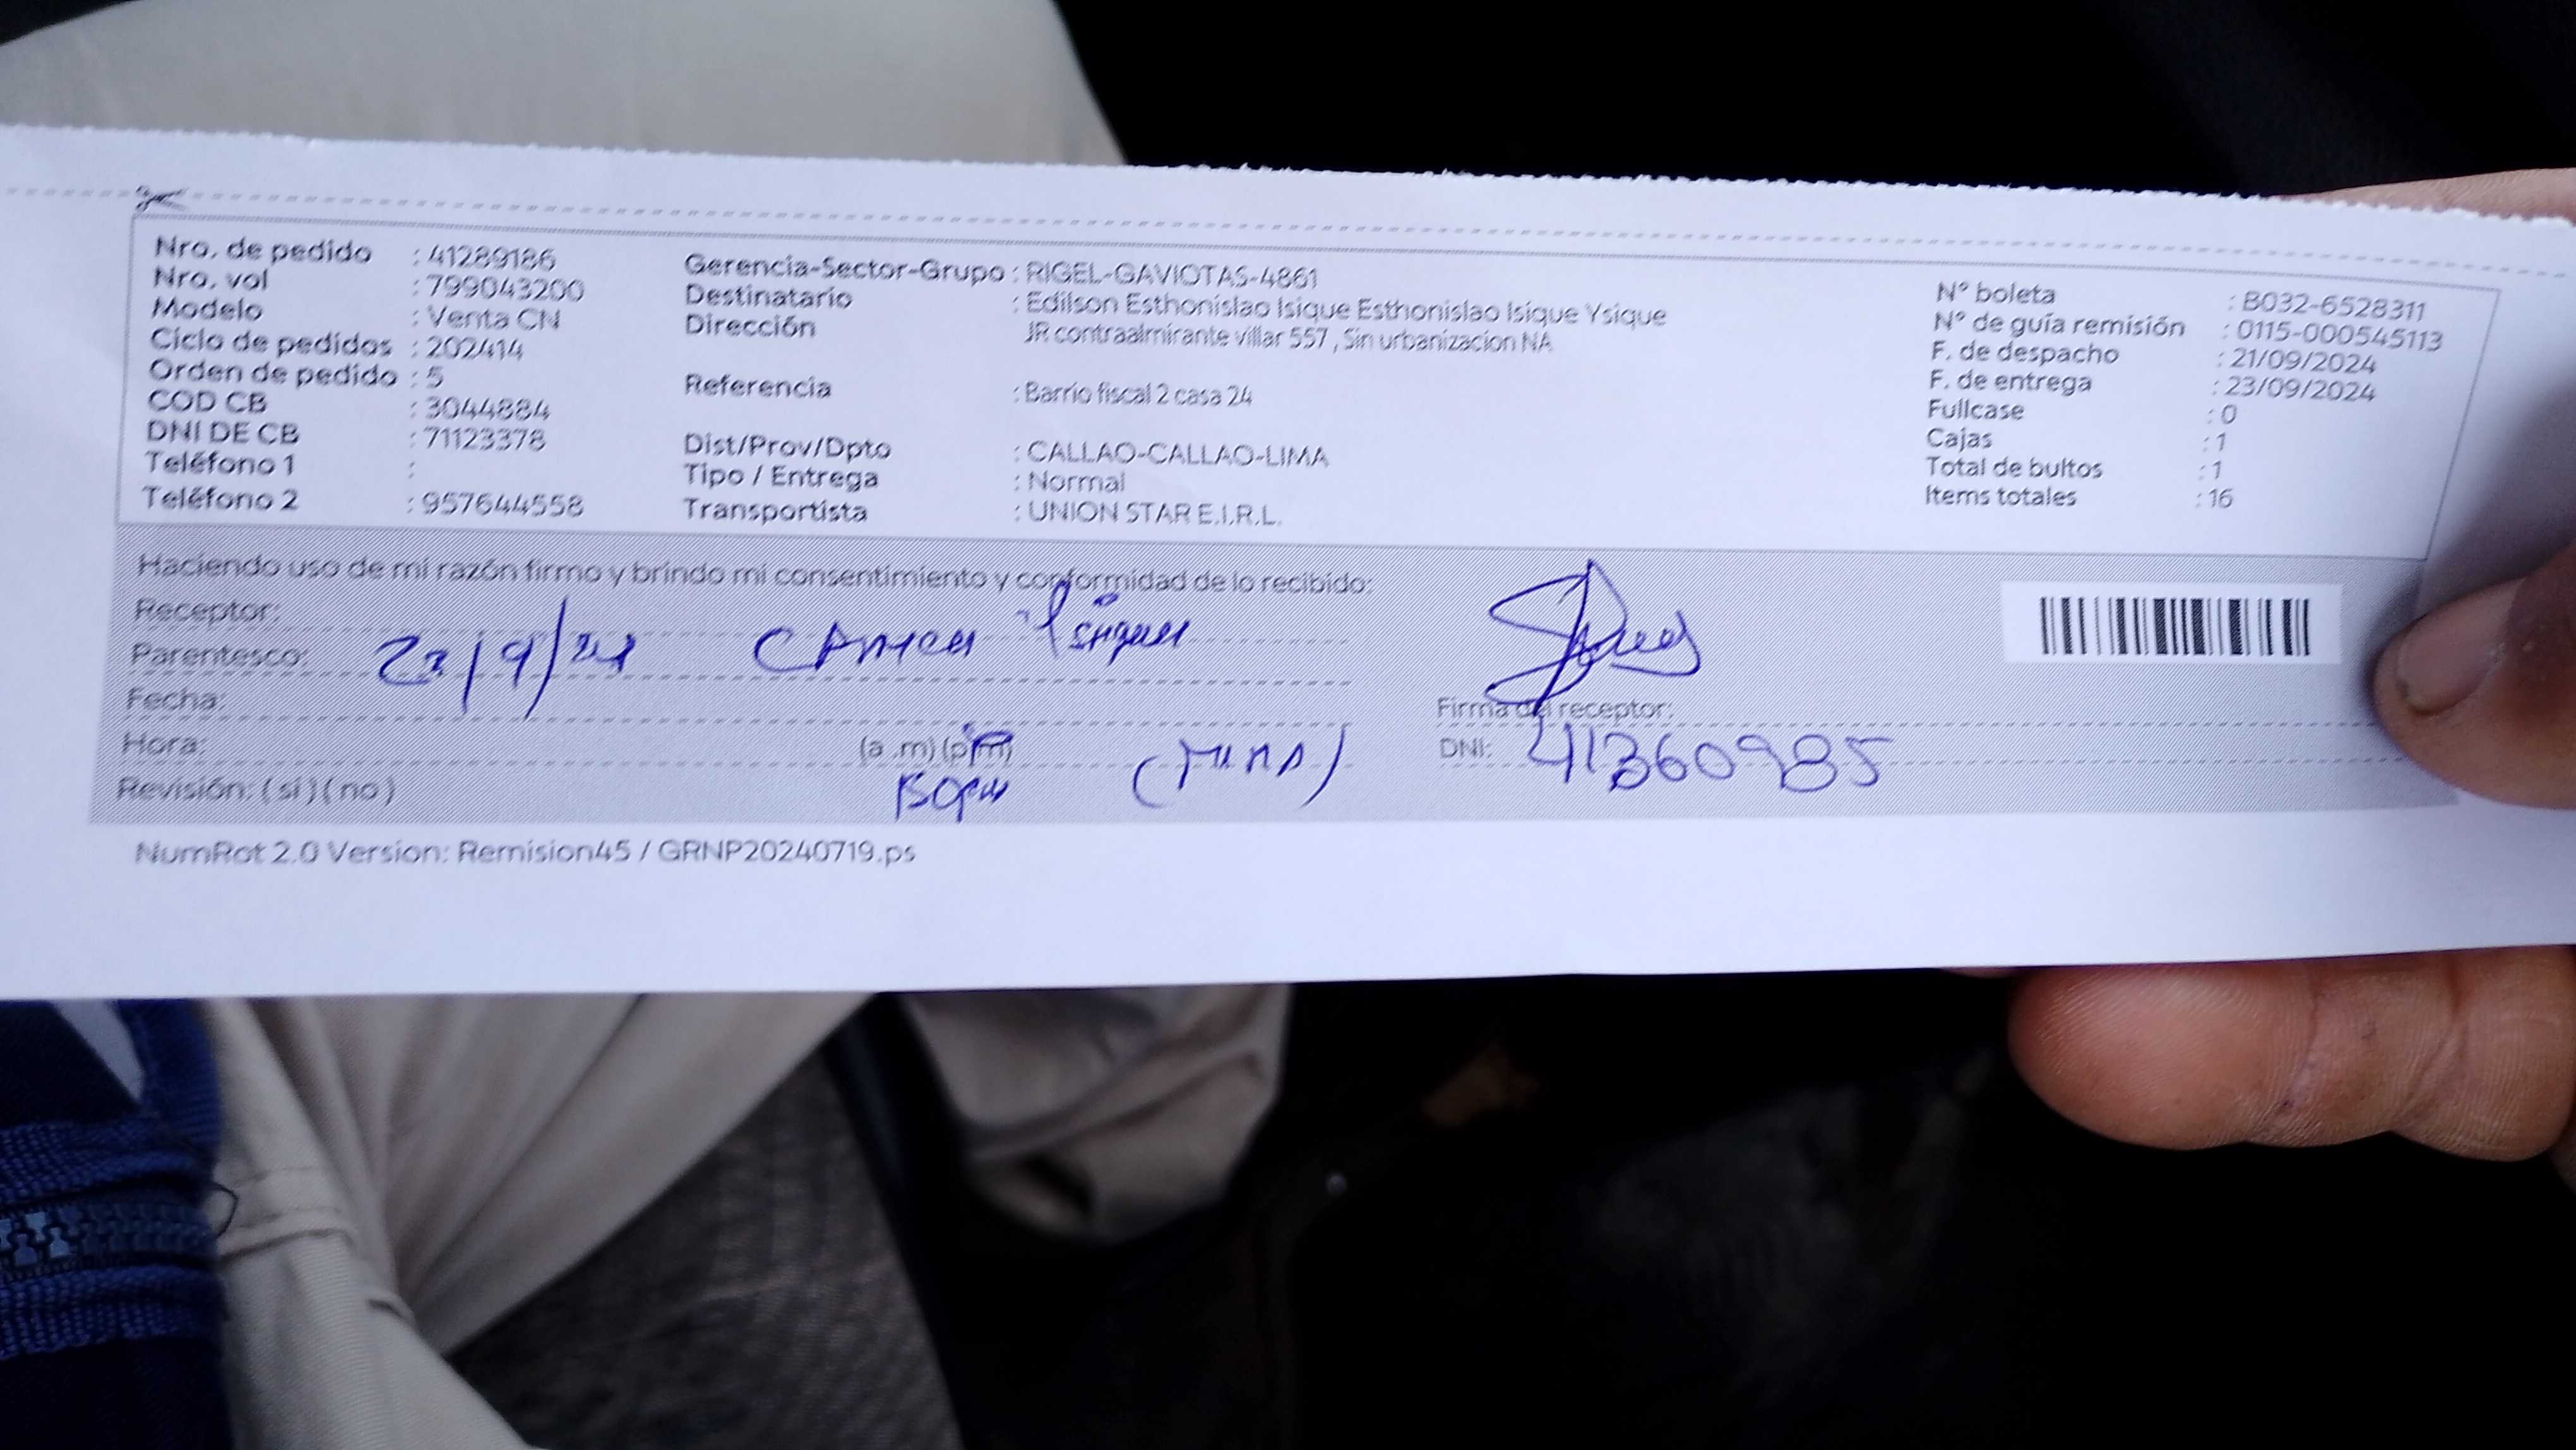 Nro. de pedido : 41289186
Nro. vol : 799043200
Modelo : Venta CN
Ciclo de pedidos : 202414
Orden de pedido : 5
COD CB : 3044884
DNI DE CB : 71123378
Teléfono 1 :
Teléfono 2 : 957644558
Gerencia-Sector-Grupo : RIGEL-GAVIOTAS-4861
Destinatario : Edilson Esthonislao Isique Esthonislao Isique Ysique
Dirección JR contraalmirante villar 557 , Sin urbanizacion NA
Referencia : Barrio fiscal 2 casa 24
Dist/Prov/Dpto : CALLAO-CALLAO-LIMA
Tipo / Entrega : Normal
Transportista : UNION STAR E.I.R.L.
N° boleta : B032-6528311
N° de guía remisión : 0115-000545113
F. de despacho : 21/09/2024
F. de entrega : 23/09/2024
Fullcase : 0
Cajas : 1
Total de bultos : 1
Items totales : 16
Haciendo uso de mi razón firmo y brindo mi consentimiento y conformidad de lo recibido:
Receptor:
Parentesco: 23/9/24
Fecha:
Hora: (a .m) (p.m)
Revisión: ( si ) ( no )
Firma del receptor:
DNI: 41360985
NumRot 2.0 Version: Remision45 / GRNP20240719.ps